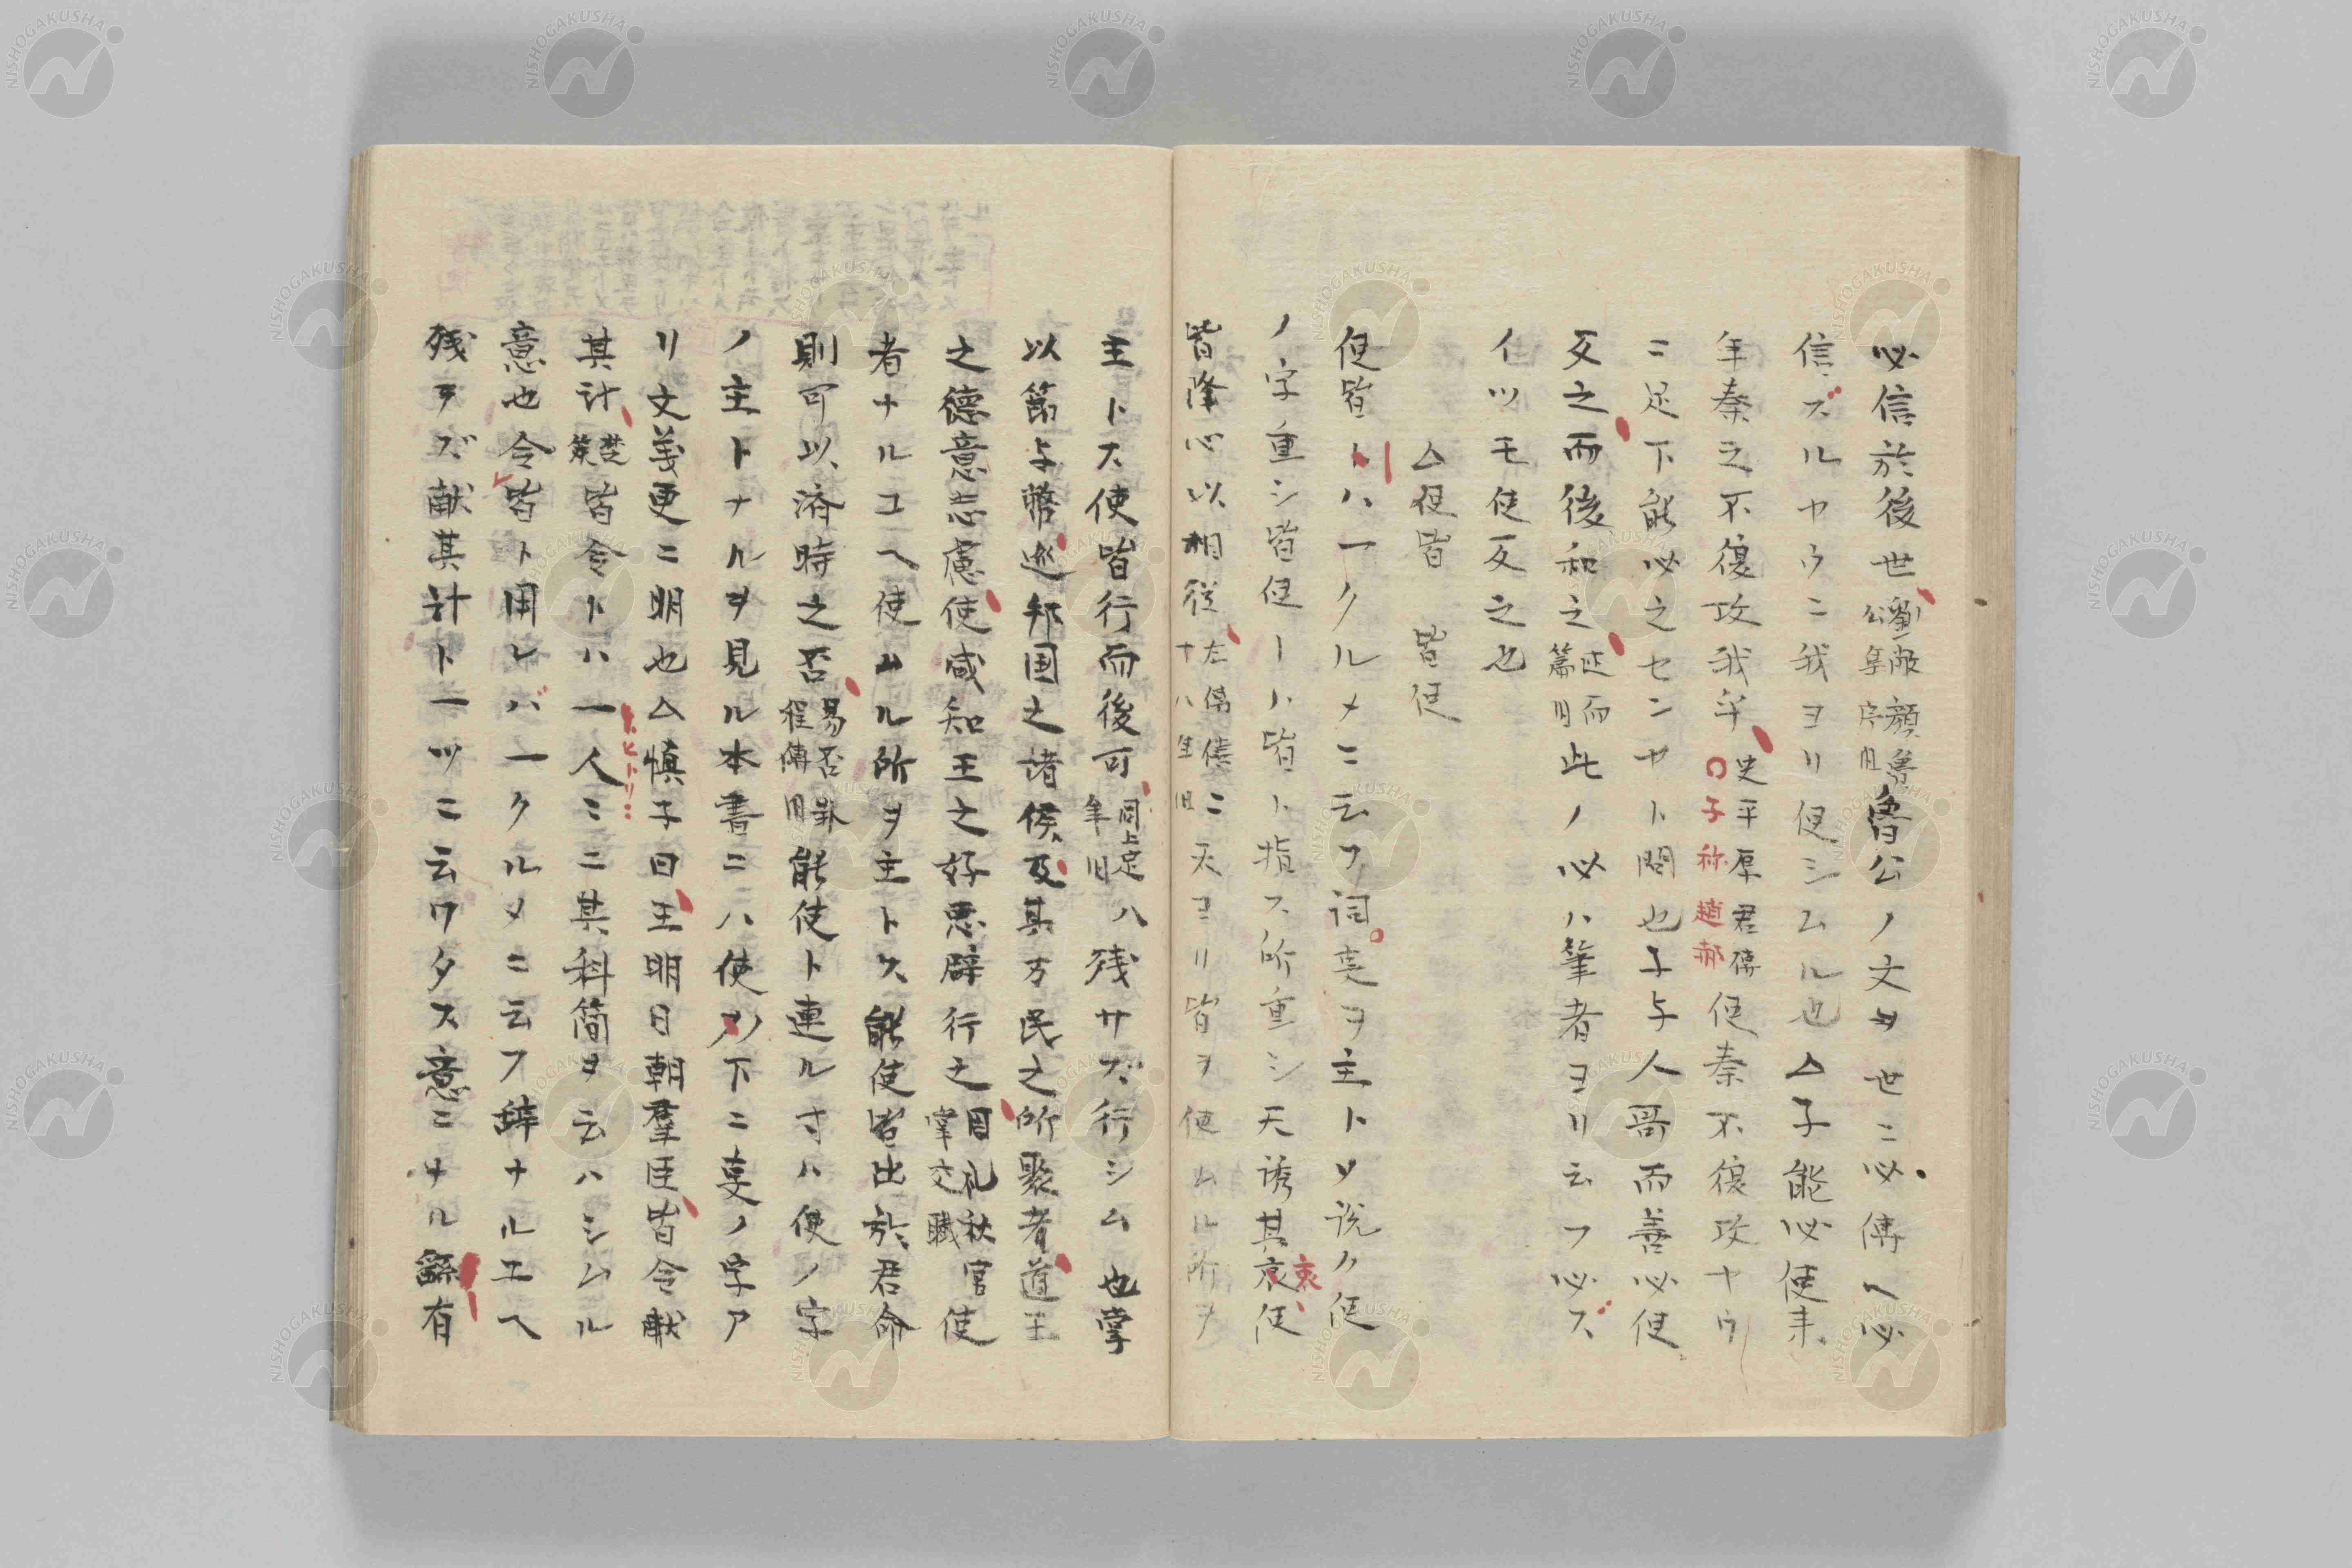 必信於後世劉敞顔魯公集序旧魯公ノ文ヲ世ニ必傳ヘ必
信ズルヤウニ我ヨリ使シムル也△子能必使来
年秦之不復攻我乎史平原君傳○子称趙郝使秦不復攻ヤウ
ニ足下能必之センヤト問也子与人哥而善必使
反之而後和之述而篇旧此ノ必ハ筆者ヨリ云フ必ズ
イツモ使反之也
△使皆 皆使
使皆トハ一クルメニ云フ詞夷ヲ主トソ説ク使
ノ字重シ皆使ーハ皆ト指ス所重シ天誘其衷衷使
皆降心以相従左傳僖二十八年旧天ヨリ皆ヲ使ムル所ヲ
主トス使皆行而後可同上定八年旧残サズ行シム也掌
以節与幣巡邦国之諸侯及其万民之所聚者道王
之徳意志慮使咸知王之好悪辟行之周礼秋官掌交職使
者ナルユヘ使ムル所ヲ主トス能使皆出於君命
則可以済時之否易否卦程傳旧能使ト連ル寸ハ使ノ字
ノ主トナルヲ見ル本書ニハ使ノ下ニ吏ノ字ア
リ文義更ニ明也△慎子曰王明日朝羣臣皆令献
其計楚策皆令トハ一人ヒトリミミニ其科簡ヲ云ハシムル
意也令皆ト用レバ一クルメニ云フ辞ナルユヘ
残ラズ献其計ト一ツニ云ワタス意ニナル繇有